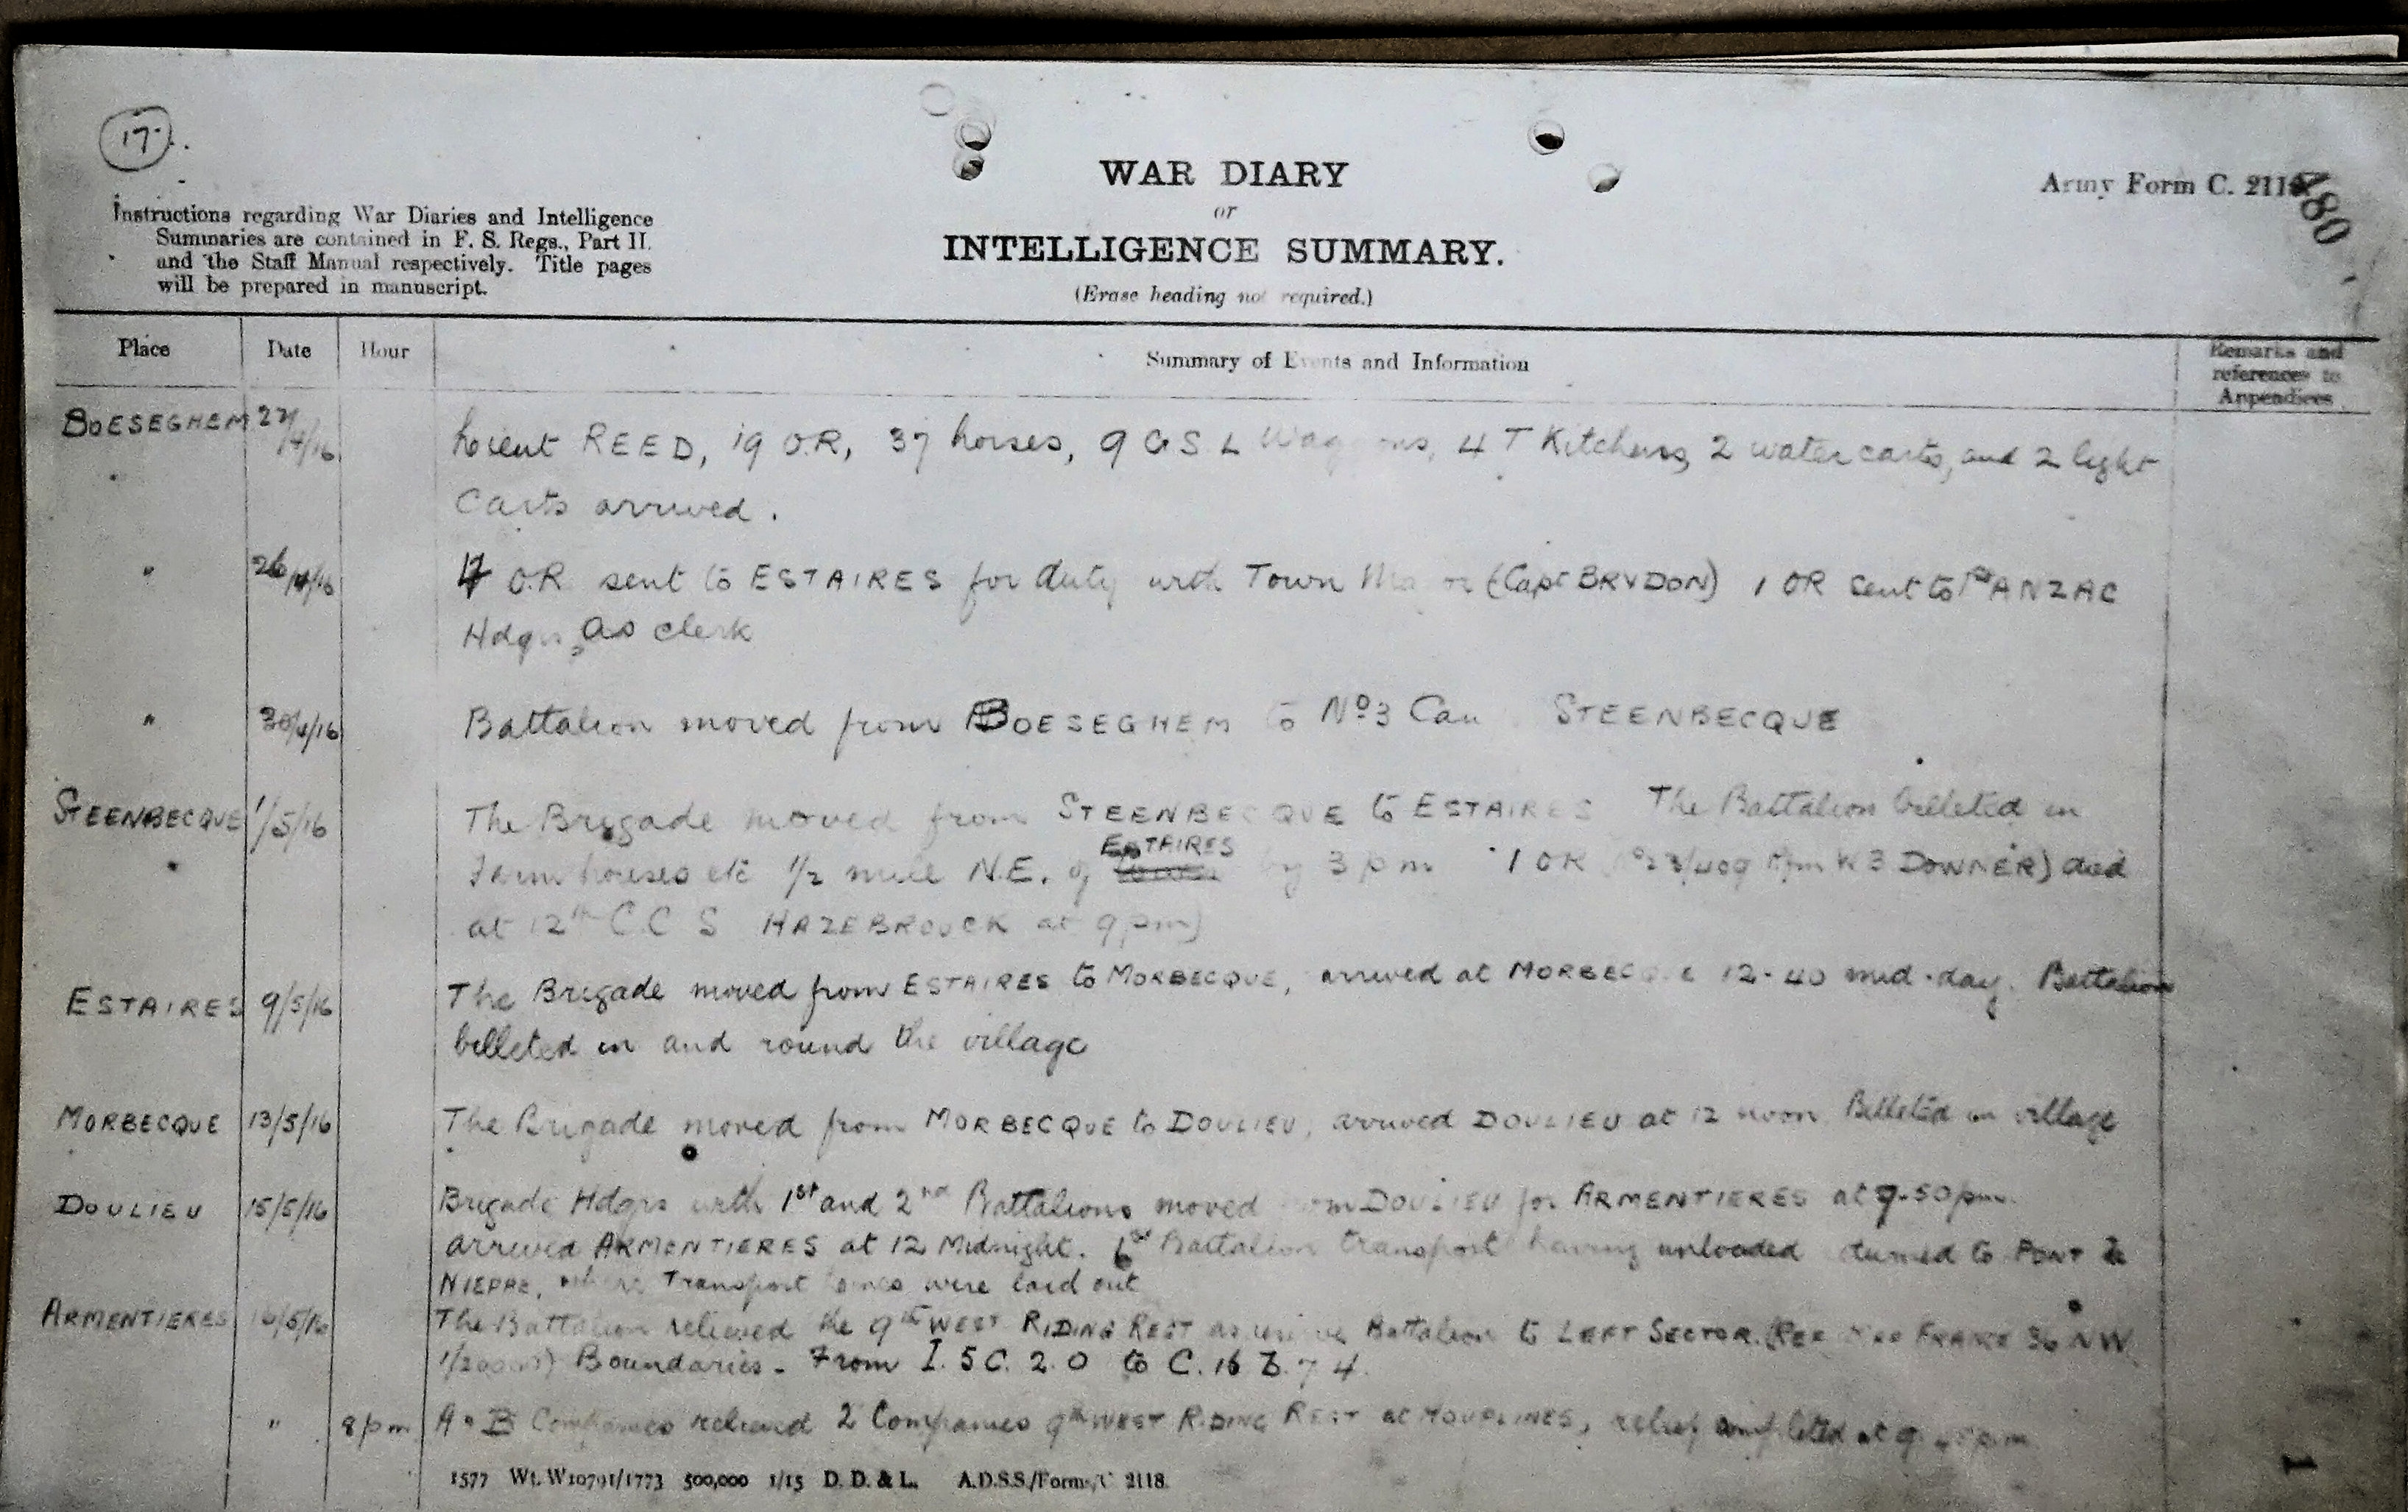 17.
WAR DIARY
or
INTELLIGENCE SUMMARY.
(Erase heading not required.)
Army Form C. 2118
180
Instructions regarding War Diaries and Intelligence
Summaries are contained in F. S. Regs., Part II.
and the Staff Manual respectively. Title pages
will be prepared in manuscript.
Place Date Hour Summary of Events and Information Remarks and
references to
Appendices
BOESEGHEM Lieut REED, 19 O.R, 37 horses, 9 G S L Wagons, 4 T Kitchens, 2 water carts, and 2 light
Carts arrived.
" 26/4/16 O.R sent to ESTAIRES for duty with Town Major (Capt BRYDON) 1 OR sent to 1st ANZAC
Hdqrs, as clerk
" 30/4/16 Battalion moved from BOESEGHEM to No 3 STEENBECQUE
STEENBECQUE 1/5/16 The Brigade moved from STEENBECQUE to ESTAIRES The Battalion billeted in
Farm houses etc 1/2 mile N.E. of ESTAIRES by 3 pm 1 OR DOWNER) died
at 12th C C S HAZEBROUCK at 9 pm)
ESTAIRES 9/5/16 The Brigade moved from ESTAIRES to MORBECQUE, arrived at MORBECQUE 12-40 mid-day. Battalion
billeted in and round the village
MORBECQUE 13/5/16 The Brigade moved from MORBECQUE to DOULIEU, arrived DOULIEU at 12 noon Billeted in village
DOULIEU 15/5/16 Brigade Hdqrs with 1st and 2nd Battalions moved from DOULIEU for ARMENTIERES at 7-50 pm.
arrived ARMENTIERES at 12 Midnight. Battalion transport having unloaded to PONT de
NIEPPE, where Transport lines were laid out
ARMENTIERES 16/5/16 The Battalion relieved the 9th WEST RIDING REGT as Battalion to LEFT SECTOR. FRANCE 36 NW
1/20000) Boundaries - From I. 5 C. 2. 0 to C. 16 7 4.
" 8 pm A & B Companies relieved 2 Companies 9th WEST RIDING REGT at HOUPLINES, relief completed at
1577 Wt. W10791/1773 500,000 1/15 D. D. & L. A.D.S.S./Forms/C 2118.